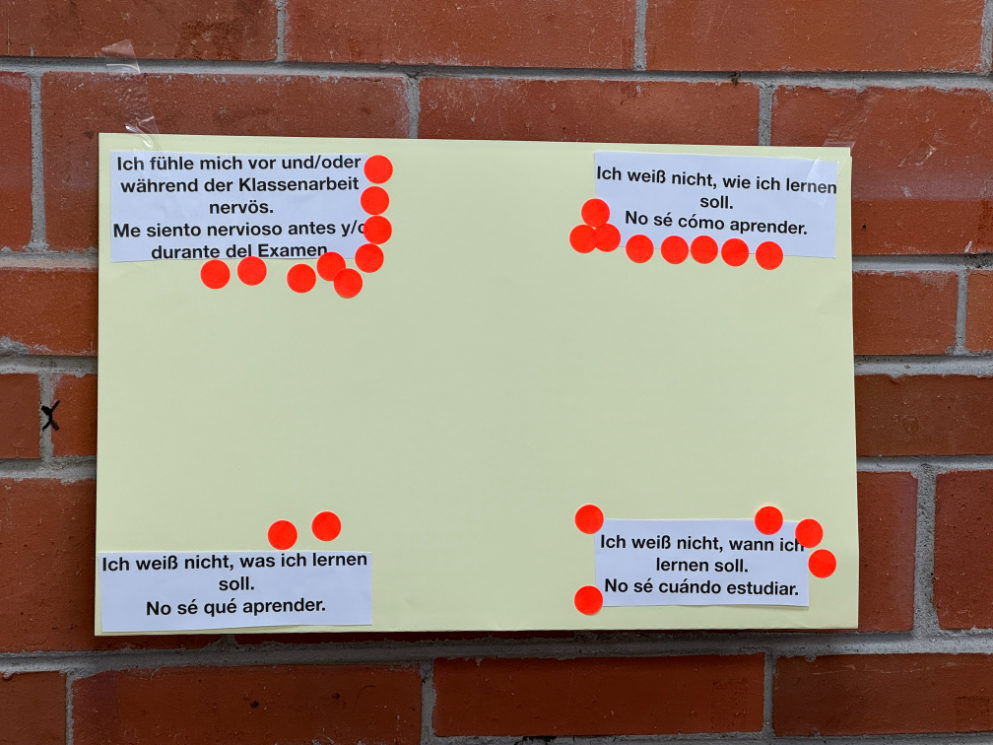 Ich fühle mich vor und/oder
während der Klassenarbeit
nervös.
Me siento nervioso antes y/o
durante del Examen
Ich weiß nicht, wie ich lernen
soll.
No sé cómo aprender.
Ich weiß nicht, was ich lernen
soll.
No sé qué aprender.
Ich weiß nicht, wann ich
lernen soll.
No sé cuándo estudiar.